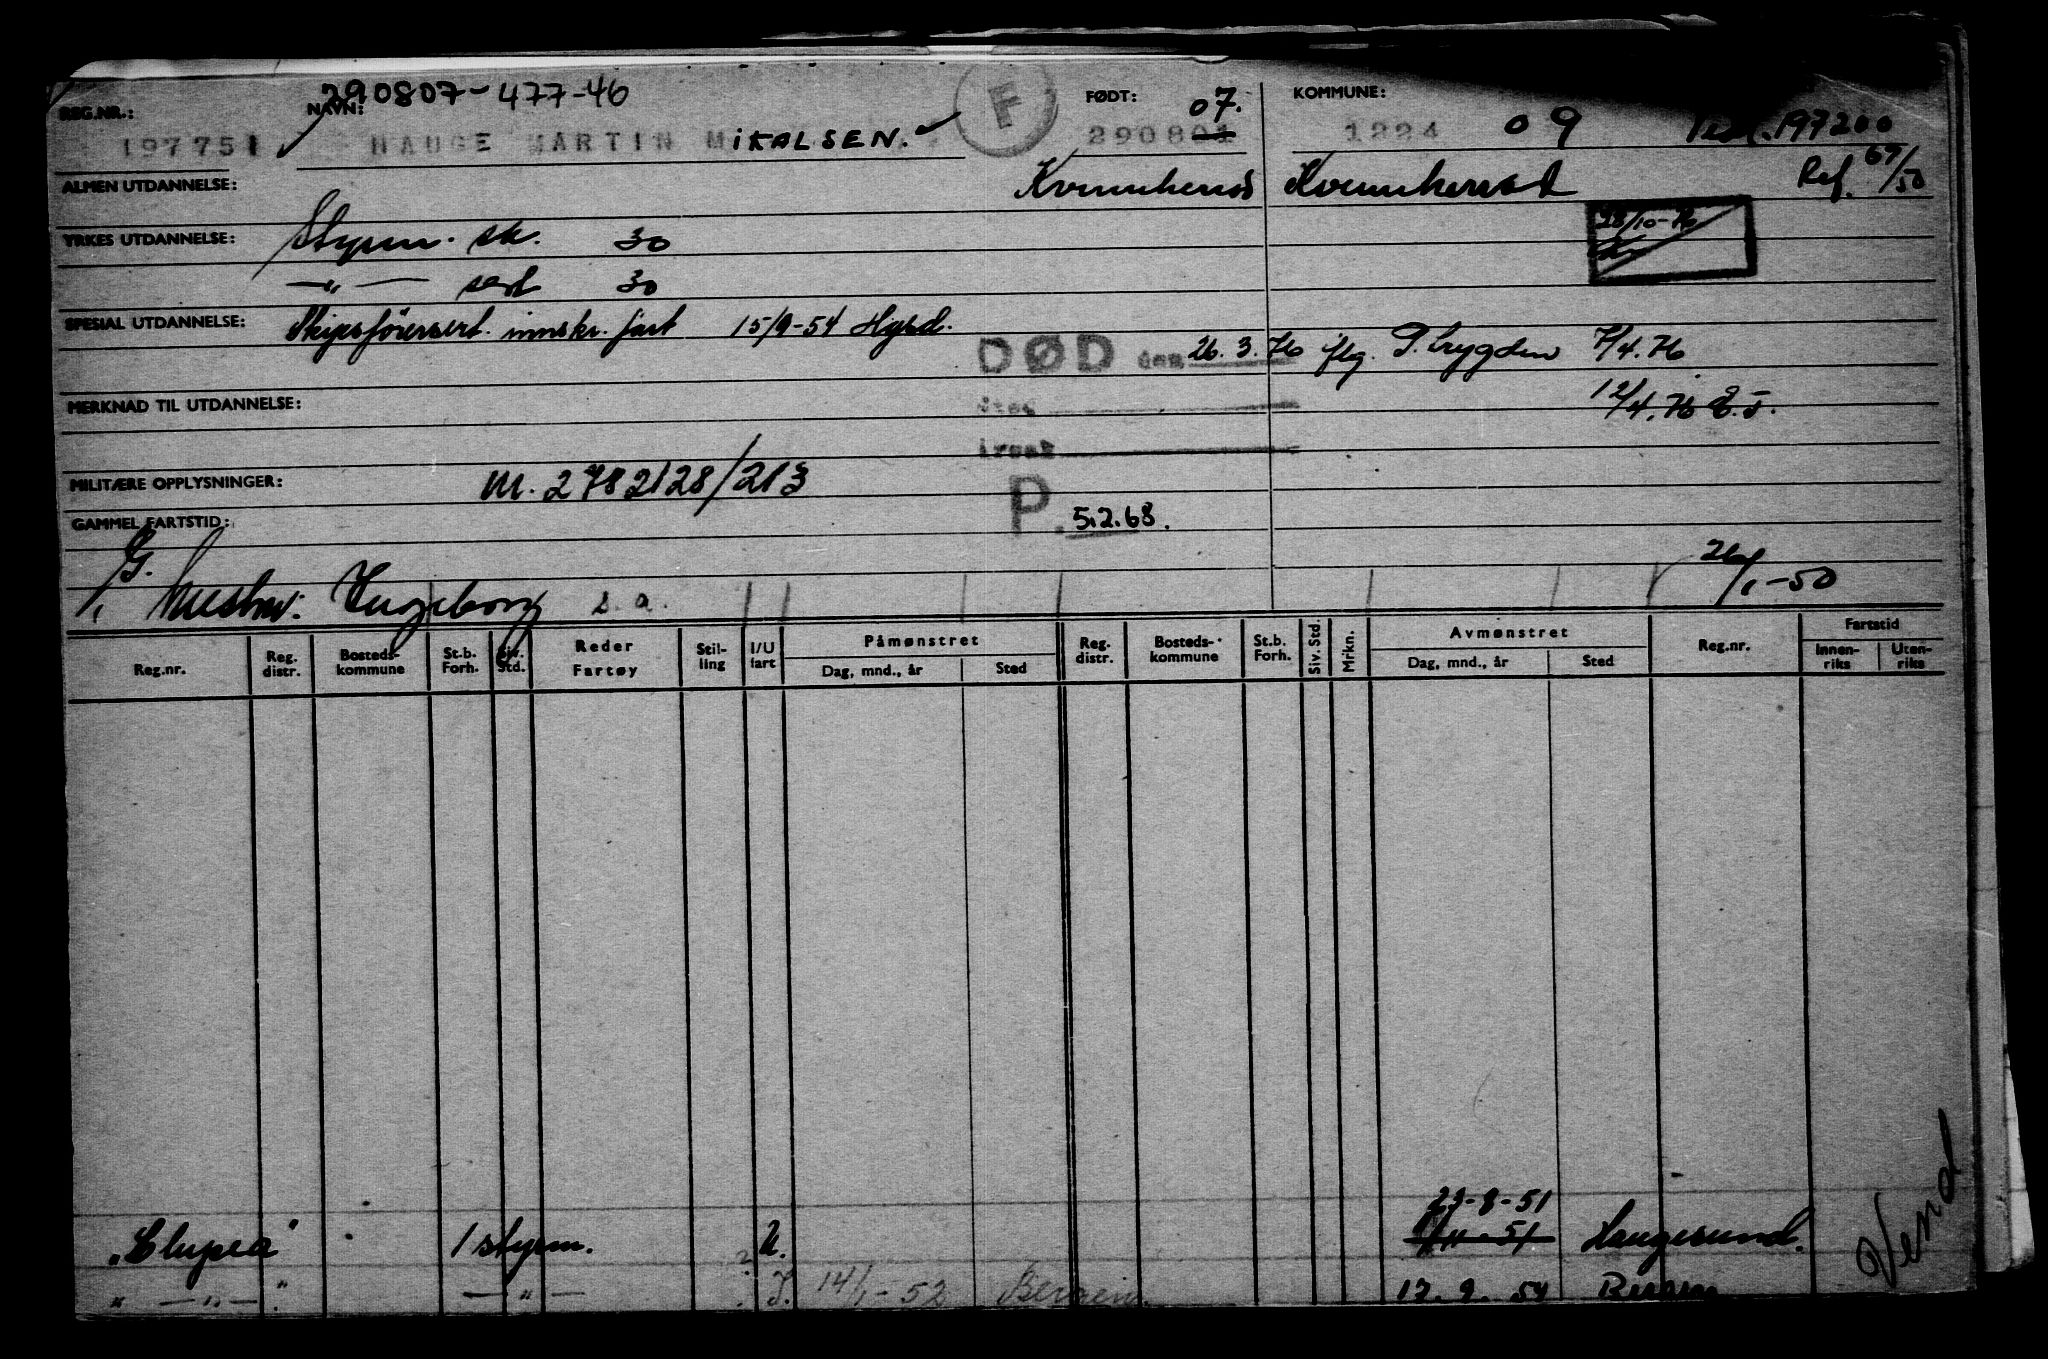 290807-477-46
REG.NR.: NAVN: F FØDT: 07. KOMMUNE:
197751 HAUGE MARTIN MIKALSEN. 290801 1224 09 197200
ALMEN UTDANNELSE: Kvinnherad Kvinnherad Ref. 67/50
YRKES UTDANNELSE: Styrm. sk. 30 28/10-76
—„— sert 30
SPESIAL UTDANNELSE: Skipsførersert. innskr. fart 15/9-54 Hgsd.
DØD den 26.3.76 iflg. P.trygden 7/4.76
MERKNAD TIL UTDANNELSE: sted 12/4.76
årsak
MILITÆRE OPPLYSNINGER: M. 2782128/213
P. 5.2.68.
GAMMEL FARTSTID:
G. 26/1-50
Ingeborg s.a.
Reg.nr. Reg. distr. Bosteds- kommune St.b. Forh. Siv. Std. Reder Fartøy Stil- ling I/U fart Påmønstret Dag, mnd., år Sted Reg. distr. Bosteds- kommune St.b. Forh. Siv. Std. Mrkn. Avmønstret Dag, mnd., år Sted Reg.nr. Fartstid Innen- riks Uten- riks
23-8-51
„Clupea" 1 styrm. U. Haugesund.
„ —„— —„— I. 14/1-52 Bergen 12.9.54 Bergen
Vend